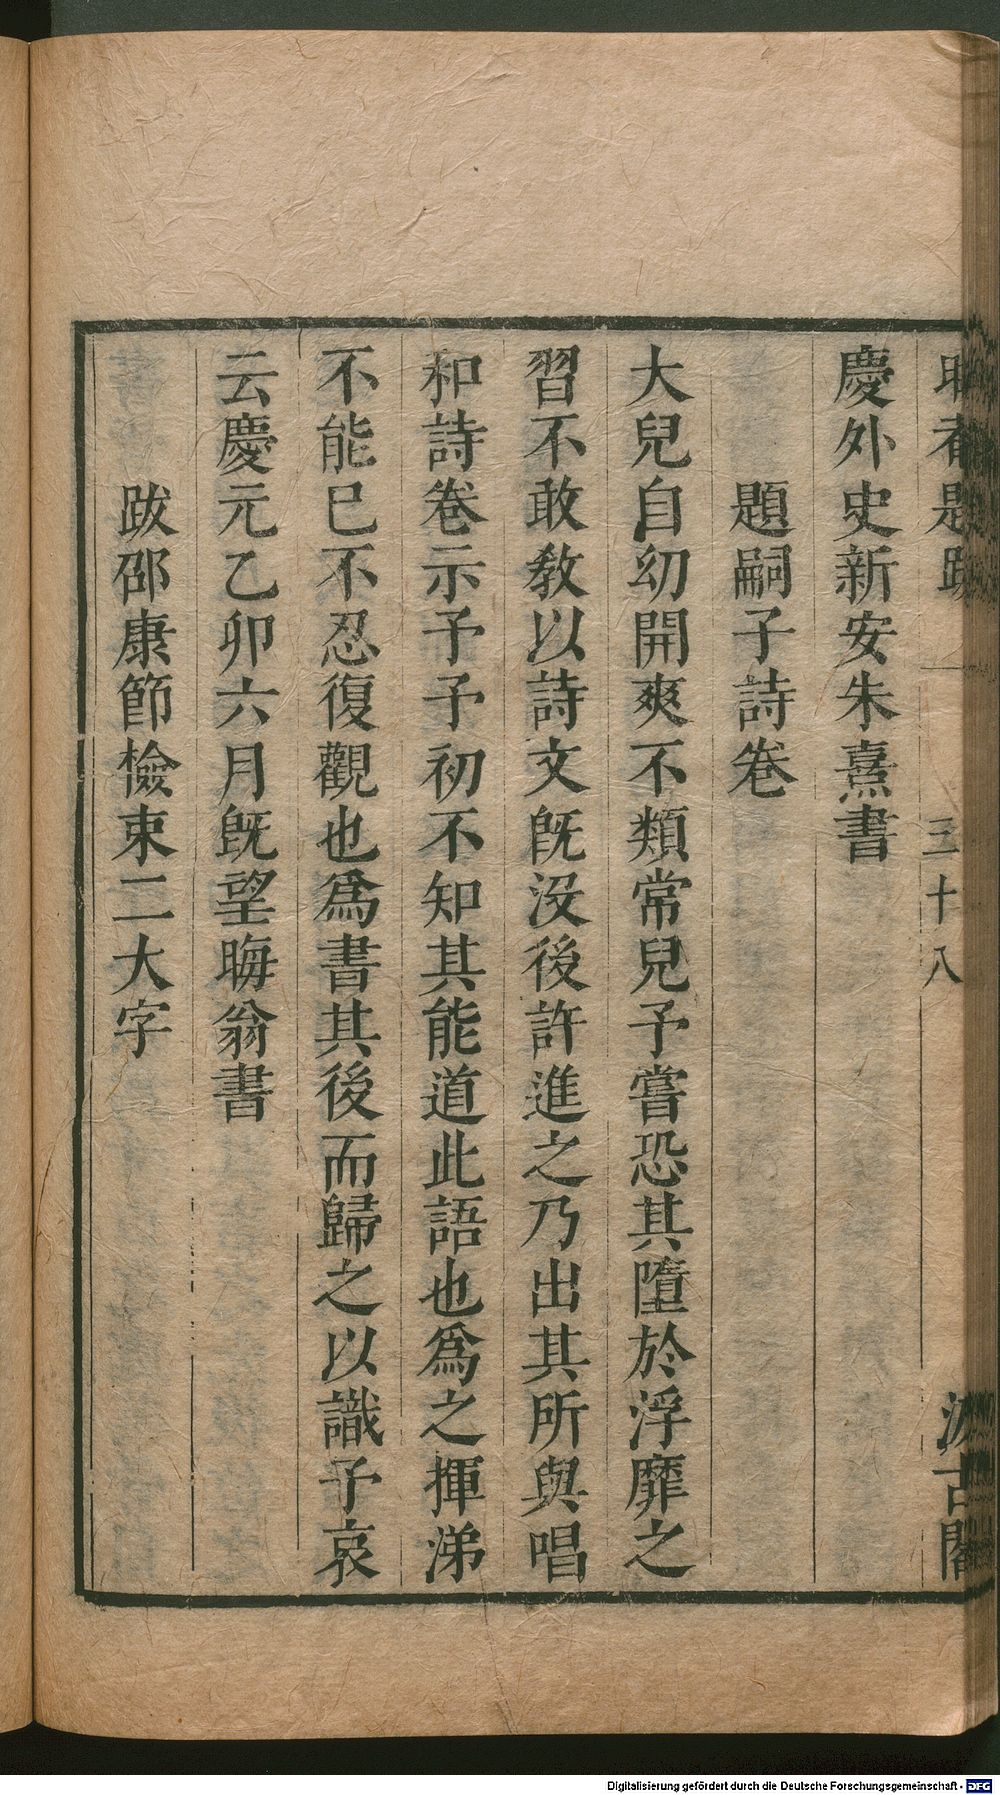 晦菴題跋 一 三十八 汲古閣
慶外史新安朱熹書
題嗣子詩卷
大兒自幼開爽不類常兒予嘗恐其墮於浮靡之
習不敢敎以詩文旣没後許進之乃出其所與唱
和詩卷示予予初不知其能道此語也爲之揮涕
不能已不忍復觀也爲書其後而歸之以識予哀
云慶元乙卯六月旣望晦翁書
跋邵康節檢束二大字
Digitalisierung gefördert durch die Deutsche Forschungsgemeinschaft - DFG